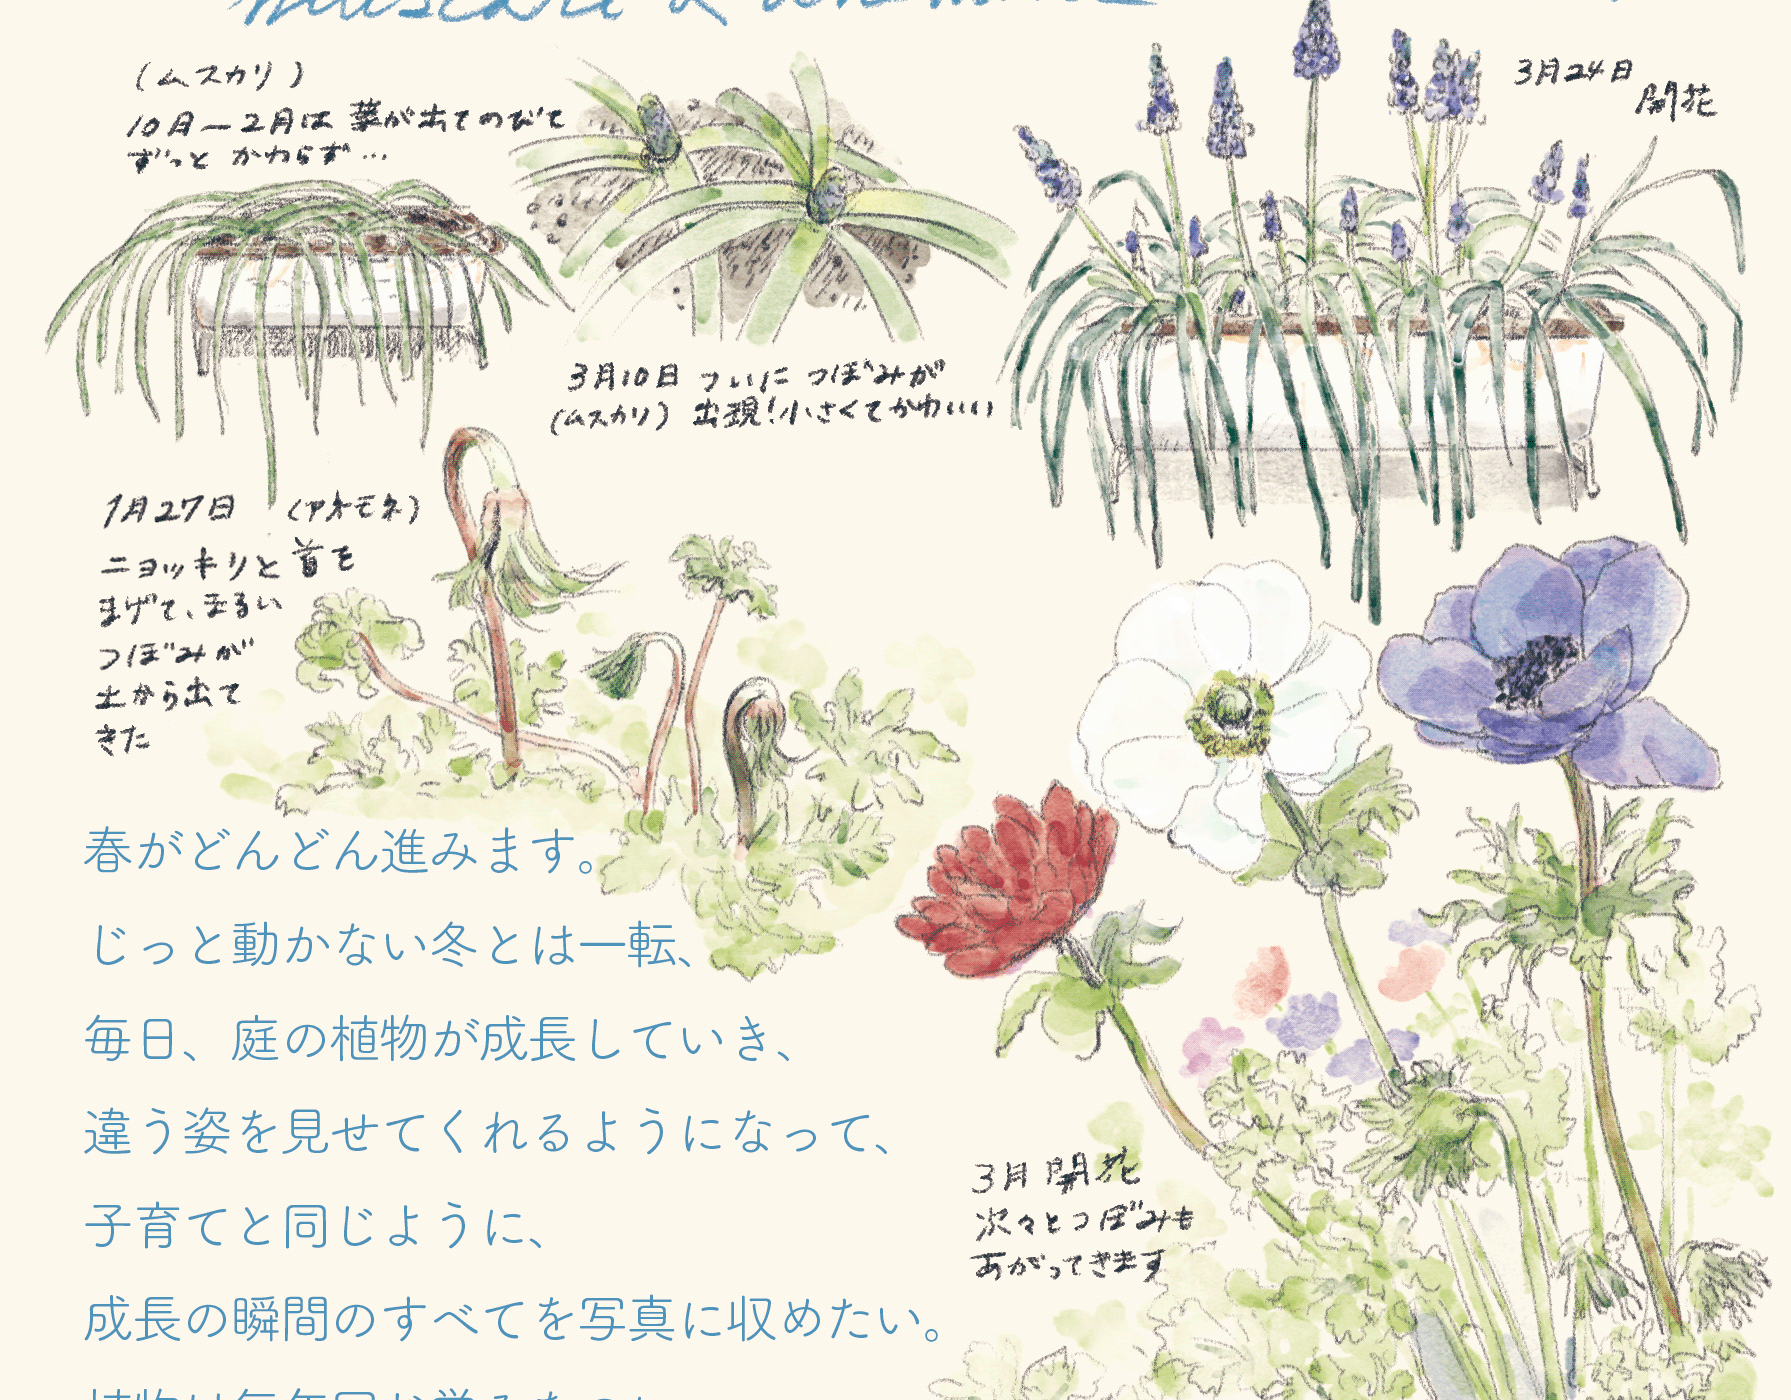 muscari &
(ムスカリ)
10月―2月は 葉が出てのびて
ずっと かわらず…
3月24日
開花
3月10日 ついに つぼみが
(ムスカリ) 出現!小さくてかわいい
1月27日 (アネモネ)
ニョッキリと首を
まげて、まるい
つぼみが
土から出て
きた
春がどんどん進みます。
じっと動かない冬とは一転、
毎日、庭の植物が成長していき、
違う姿を見せてくれるようになって、
子育てと同じように、
成長の瞬間のすべてを写真に収めたい。
3月 開花
次々とつぼみも
あがってきます